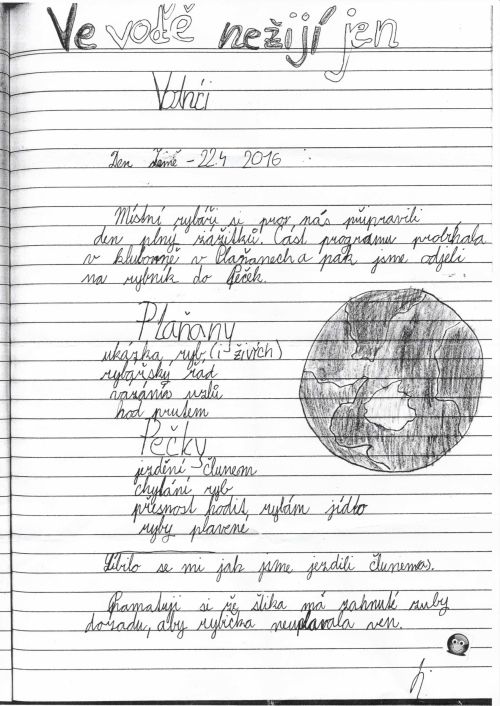 Ve vodě nežijí jen
Vodníci
Den Země - 22.4 2016
Místní rybáři si pro nás připravili
den plný zážitků. Část programu probíhala
v klubovně v Plaňanech a pak jsme odjeli
na rybník do Peček.
Plaňany
ukázka ryb (i živích)
rybářský řád
vázání uzlů
hod prutem
Pečky
jezdění člunem
chytání ryb
přesnost hodit rybám jídlo
ryby plavené
Líbilo se mi jak jsme jezdili člunema.
Pamatuji si že štika má zahnuté zuby
dozadu, aby rybička neuplavala ven.